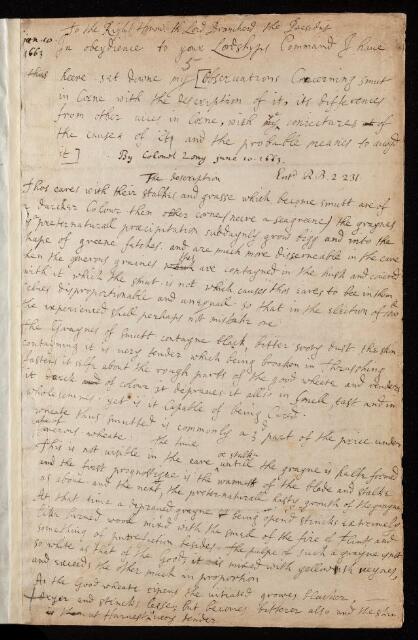 To the Right Honor: th Lord Brouncker the President
June. 10.
1663
In obeydience to your Lordshyps Command I have
thus heere set downe my [Observations Concerning smut
in Corne with the description of it, its differences
from other in Corne, with my coniectures of
the causes of it, and the probable meanes to avoyd
it] By Colonol Long June 10. 1663.
The Description Entd R.B. 2 231
Thos eares with their stalkes and grasse which become smutt are of
a darcker Colour then other corne (neere a seagreene) the graynes
by preternaturall precipitation suddaynly grow bigg and into the
shape of greene fitches. and are much more discerneable in the eare
then the generous graines are contayned in the husk and covered
with it which the smut is not which causes thos eares to bee in them
selves disproportionable and unequall so that in the selection of
the experienced shall perhaps not mistake one
The Graynes of Smutt contayne black, bitter sooty dust the skin
contayning it is very tender which being broaken in Thrashing
fastens it selfe about the rough parts of the good wheate and renders
it of colour it depraves it allso in smell, tast and in
wholesomnes: yet is it Capable of being Cured.
wheate thus smutted is commonly a part of the price under
generous wheate. the time
This is not visible in the eare untill the grayne is halfe formed
and the first prognostique is the of the blade and stalke
as above and the next, the preternaturall hasty growth of the grayne
At that time a depraved grayne being opend stincks extremely
like burned wood mixed with the smell of the fire of flints and
something of putrefaction besides. The pulpe of such a grayne is not
so white as that of the good, it is mixed with yellowish veynes,
and exceeds the other much in proportion
As the Good wheate ripens the vitiated growes blacker,
dryer and stincks lesse, but becomes bitterer also and the skin
is then at Harvest very tender